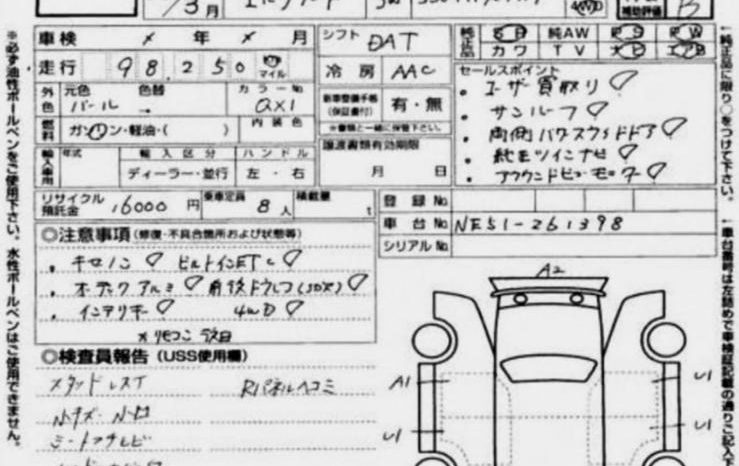 3月
4WD
補助評価 B
車検 × 年 × 月
シフト DAT
純正品 SR 純AW PS PW
カワ TV ナビ エアB
走行 98,250 km マイル
冷房 AAC
外色 元色 パール 色替 カラーNo QX1
新車整備手帳(保証書付) 有・無
※書類と一緒に保管下さい。
燃料 ガソリン・軽油・( ) 内装色
譲渡書類有効期限 月 日
輸入車用 年式 輸入区分 ハンドル
ディーラー・並行 左・右
セールスポイント
・ユーザー買取り
・サンルーフ
・両側パワースライドドア
・純正ツインナビ
・アラウンドビューモニター
リサイクル預託金 16000円 乗車定員 8人 積載量 t
登録No
車台No NE51-261398
シリアルNo
◎注意事項 (修復・不具合箇所および状態等)
・キセノン ビルトインETC
・オーテックアルミ 前後ドラレコ(社外)
・インテリキー 4WD
※リモコン 後日
◎検査員報告 (USS使用欄)
スタッドレス
Rパネルヘコミ
小キズ・小凹
A2
A1 U1
U1 U1
※必ず油性ボールペンをご使用下さい。水性ボールペンはご使用できません。
↑純正品に限り○をつけて下さい。
↑車台番号は左詰めで車検証記載の通りご記入下